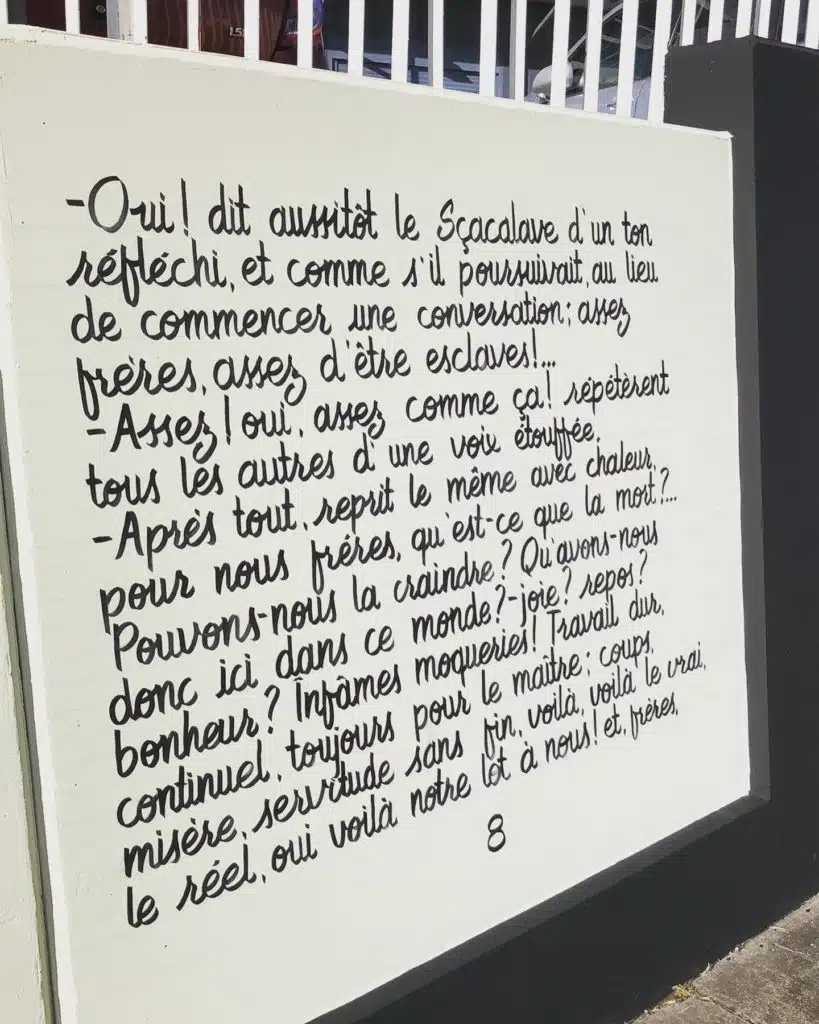 -Oui! dit aussitôt le Sçacalave d'un ton
réfléchi, et comme s'il poursuivait, au lieu
de commencer une conversation; assez
frères, assez d'être esclaves!...
-Assez! oui, assez comme ça! répétèrent
tous les autres d'une voix étouffée.
-Après tout, reprit le même avec chaleur,
pour nous frères, qu'est-ce que la mort?...
Pouvons-nous la craindre? Qu'avons-nous
donc ici dans ce monde?-joie? repos?
bonheur? Infâmes moqueries! Travail dur,
continuel, toujours pour le maître; coups,
misère, servitude sans fin, voilà, voilà le vrai,
le réel, oui voilà notre lot à nous! et, frères,
8